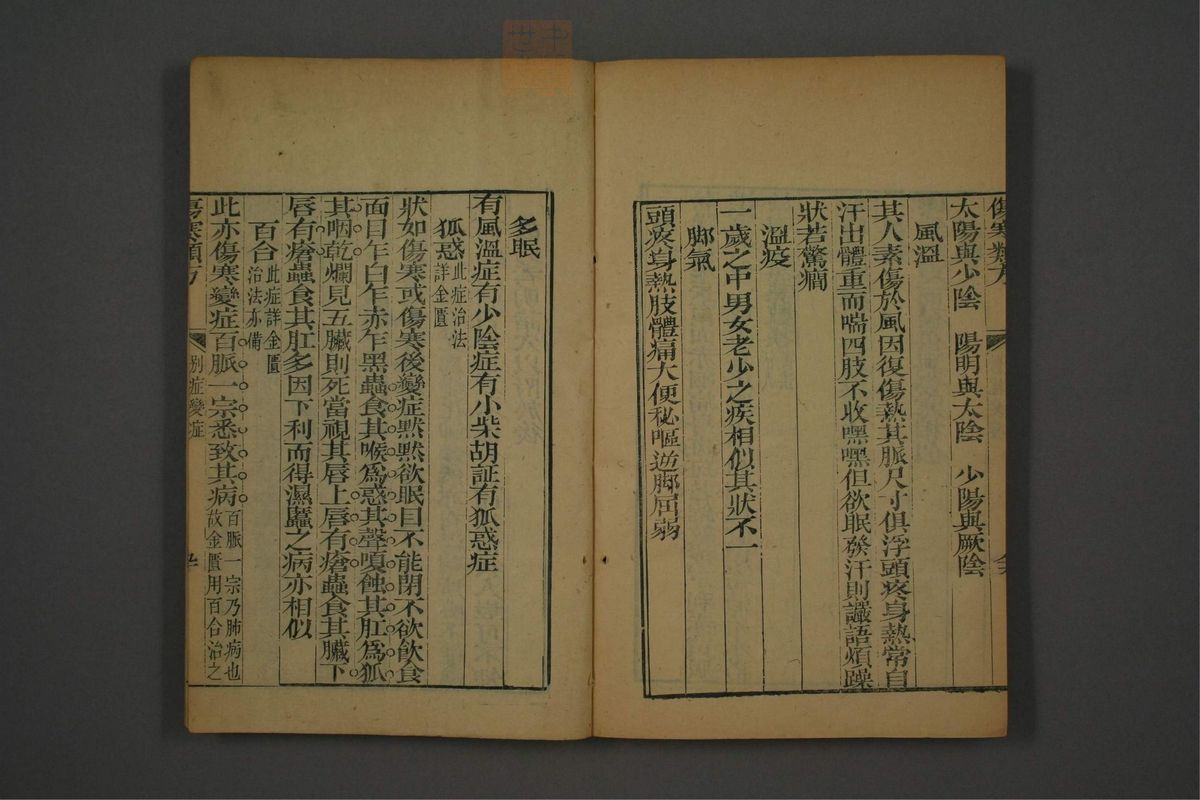 傷寒類方
太陽與少陰　陽明與太陰　少陽與厥陰
風溫
其人素傷於風因復傷熱其脈尺寸俱浮頭疼身熱常自
汗出體重而喘四肢不收嘿嘿但欲眠發汗則讝語煩躁
狀若驚癇
溫疫
一歲之中男女老少之疾相似其狀不一
脚氣
頭疼身熱肢體痛大便秘嘔逆脚屈弱
多眠
有風溫症有少陰症有小柴胡証有狐惑症
狐惑此症治法
詳金匱
狀如傷寒或傷寒後變症默默欲眠目不能閉不欲飲食
面目乍白乍赤乍黑蟲食其喉為惑其聲嗄蝕其肛為狐
其咽乾爛見五臟則死當視其唇上唇有瘡蟲食其臟下
唇有瘡蟲食其肛多因下利而得濕䘌之病亦相似
百合此症詳金匱
治法亦備
此亦傷寒變症百脈一宗悉致其病百脈一宗乃肺病也
故金匱用百合治之
傷寒類方
別症變症